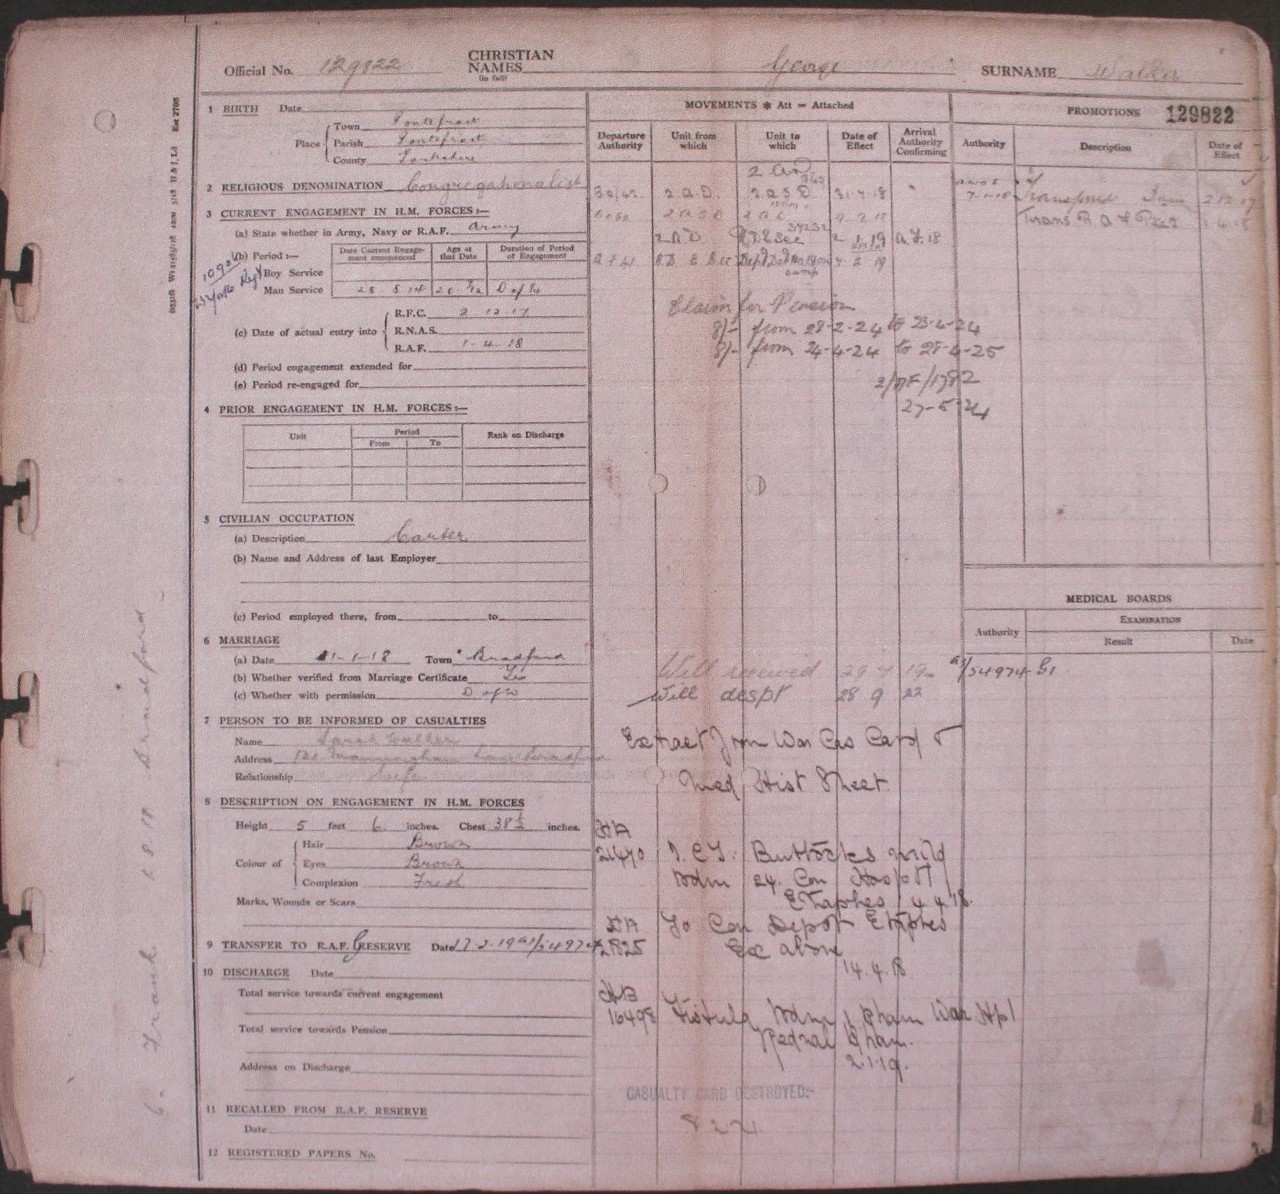 Official No. 129822 CHRISTIAN NAMES (in full) George SURNAME Walker
129822
1 BIRTH Date
Place Town Pontefract
Parish Pontefract
County Yorkshire
2 RELIGIOUS DENOMINATION Congregationalist
3 CURRENT ENGAGEMENT IN H.M. FORCES:—
(a) State whether in Army, Navy or R.A.F. Army
(b) Period :—
Date Current Engagement commenced Age at that Date Duration of Period of Engagement
Boy Service
Man Service 28.8.14 D of W
(c) Date of actual entry into
R.F.C. 2.12.17
R.N.A.S.
R.A.F. 1.4.18
(d) Period engagement extended for
(e) Period re-engaged for
4 PRIOR ENGAGEMENT IN H.M. FORCES:—
Unit Period From To Rank on Discharge
5 CIVILIAN OCCUPATION
(a) Description Carter
(b) Name and Address of last Employer
(c) Period employed there, from to
6 MARRIAGE
(a) Date 1-1-18 Town Bradford
(b) Whether verified from Marriage Certificate Yes
(c) Whether with permission D of W
7 PERSON TO BE INFORMED OF CASUALTIES
Name Sarah Walker
Address Manningham Lane Bradford
Relationship Wife
8 DESCRIPTION ON ENGAGEMENT IN H.M. FORCES
Height 5 feet 6 inches. Chest 38½ inches.
Colour of
Hair Brown
Eyes Brown
Complexion Fresh
Marks, Wounds or Scars
9 TRANSFER TO R.A.F. G RESERVE Date 17.2.19
10 DISCHARGE Date
Total service towards current engagement
Total service towards Pension
Address on Discharge
11 RECALLED FROM R.A.F. RESERVE
Date
12 REGISTERED PAPERS No.
MOVEMENTS * Att = Attached
Departure Authority Unit from which Unit to which Date of Effect Arrival Authority Confirming
2 A.D.
2.A.D. 2.A.S.D. 31.7.18
2 A S D
2 A D 1.19
2 19
Claim for Pension
8/- from 28-2-24 to 23-4-24
8/- from 24-4-24 to 28-4-25
27-5-24
Will received 29 7 19
Will despt 28 9 22
Extract from War Cas Card &
Med Hist Sheet
HA
21470 I.C.T. Buttocks mild
Adm 24. Con Hospt
Etaples 4.4.18.
HA To Con Depot Etaples
2825 Ex above
14.4.18
HB
Fistula Adm Bham War Hpl
Rednal Bham.
2.1.19.
CASUALTY CARD DESTROYED:-
PROMOTIONS
Authority Description Date of Effect
Transferred 2.12.17
Trans R A F 1.4.18
MEDICAL BOARDS
Authority EXAMINATION
Result Date
54974 G1
6. Frank 1.8.19 Bradford